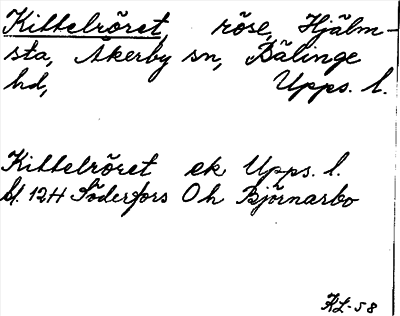 Kittelröret, röse, Hjälm-
sta, Åkerby sn, Bälinge
hd, Upps. l.
Kittelröret ek Upps. l.
bl. 12H Söderfors Oh Björnarbo
KL-58